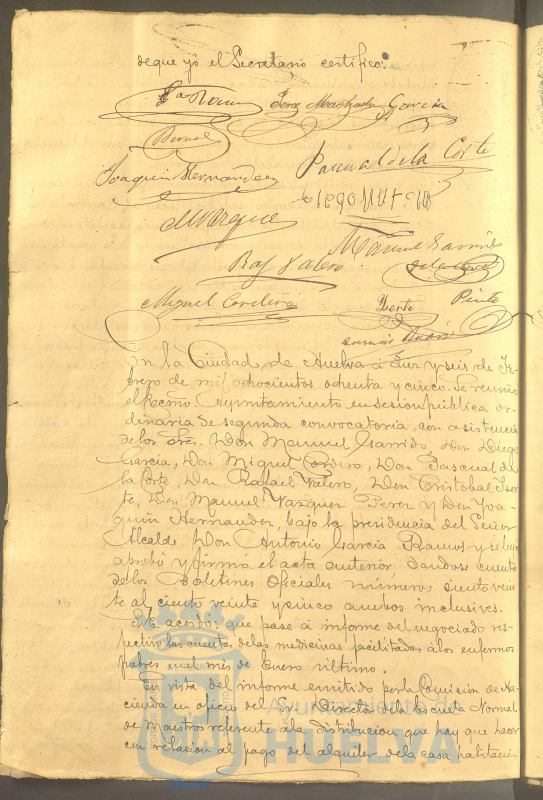 de que yo el Secretario certifico.
Jose Machado Garcia
Bernal
Joaquin Hernandez
Pascual de la Corte
M Vazquez
Manuel Garrido
Raf Valero
Miguel Cordero
Pinto
En la Ciudad de Huelva a diez y seis de Fe-
brero de mil ochocientos ochenta y cinco. Se reunió
el Excmo Ayuntamiento en sesion publica or-
dinaria de segunda convocatoria, con asistencia
de los Sres. Don Manuel Garrido Don Diego
Garcia, Don Miguel Cordero, Don Pascual de
la Corte, Don Rafael Valero, Don Cristobal Iser-
te, Don Manuel Vazquez Perez y Don Joa-
quin Hernandez, bajo la presidencia del Señor
Alcalde Don Antonio Garcia Ramos y se leyo
aprobó y firmo el acta anterior dandose cuenta
de los Boletines Oficiales números ciento vein-
te al ciento veinte y cinco ambos inclusives.
Se acordó: que pase a informe del negociado res-
pectivo las cuentas de las medicinas facilitadas a los enfermos
pobres en el mes de Enero ultimo
En vista del informe emitido por la Comision de Ha-
cienda en oficio del Sr. Director de la Escuela Normal
de Maestros referente a la distribucion que hay que hacer
con relacion al pago del alquiler de la casa habitacion
Ayuntamiento de
HUELVA